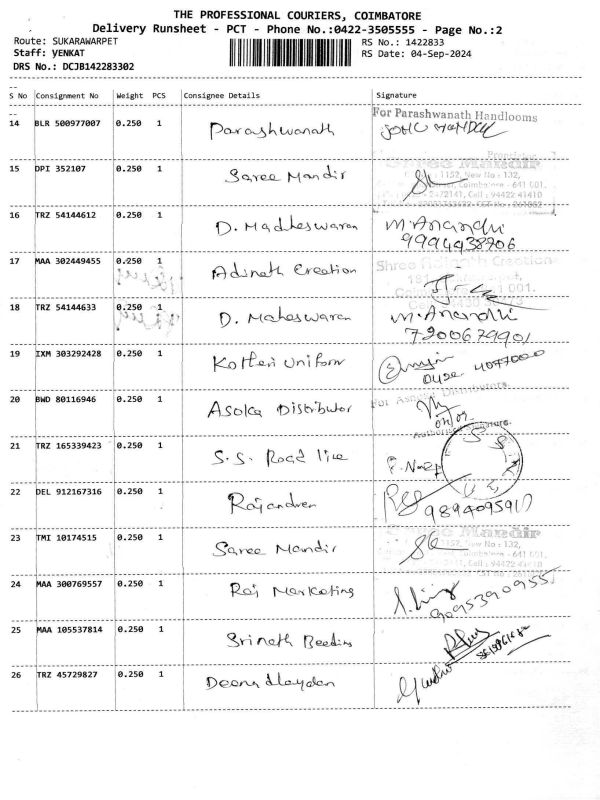 THE PROFESSIONAL COURIERS, COIMBATORE
Delivery Runsheet - PCT - Phone No.:0422-3505555 - Page No.:2
Route: SUKARAWARPET RS No.: 1422833
Staff: yENKAT RS Date: 04-Sep-2024
DRS No.: DCJB142283302
S No Consignment No Weight PCS Consignee Details Signature
For Parashwanath Handlooms
14 BLR 500977007 0.250 1 Parashwanath
15 DPI 352107 0.250 1 Saree Mandir
Shree Mandir
1152, New No : 132,
Coimbatore - 641 001.
16 TRZ 54144612 0.250 1 D. Madheswaran M. Anandhi
9994938906
17 MAA 302449455 0.250 1 Adinath Creation
Shree Adinath Creation
18 TRZ 54144633 0.250 1 D. Maheswaran M. Anandhi
7200679901
19 IXM 303292428 0.250 1 Kotteri Uniform
20 BWD 80116946 0.250 1 Asoka Distributor
Authorised Signature
21 TRZ 165339423 0.250 1 S.S. Road line
22 DEL 912167316 0.250 1 Rajandren
23 TMI 10174515 0.250 1 Saree Mandir
Shree Mandir
1152, New No : 132,
Coimbatore - 641 001.
24 MAA 300769557 0.250 1 Raj Marketing
9095390955
25 MAA 105537814 0.250 1 Srinath Beedies
26 TRZ 45729827 0.250 1